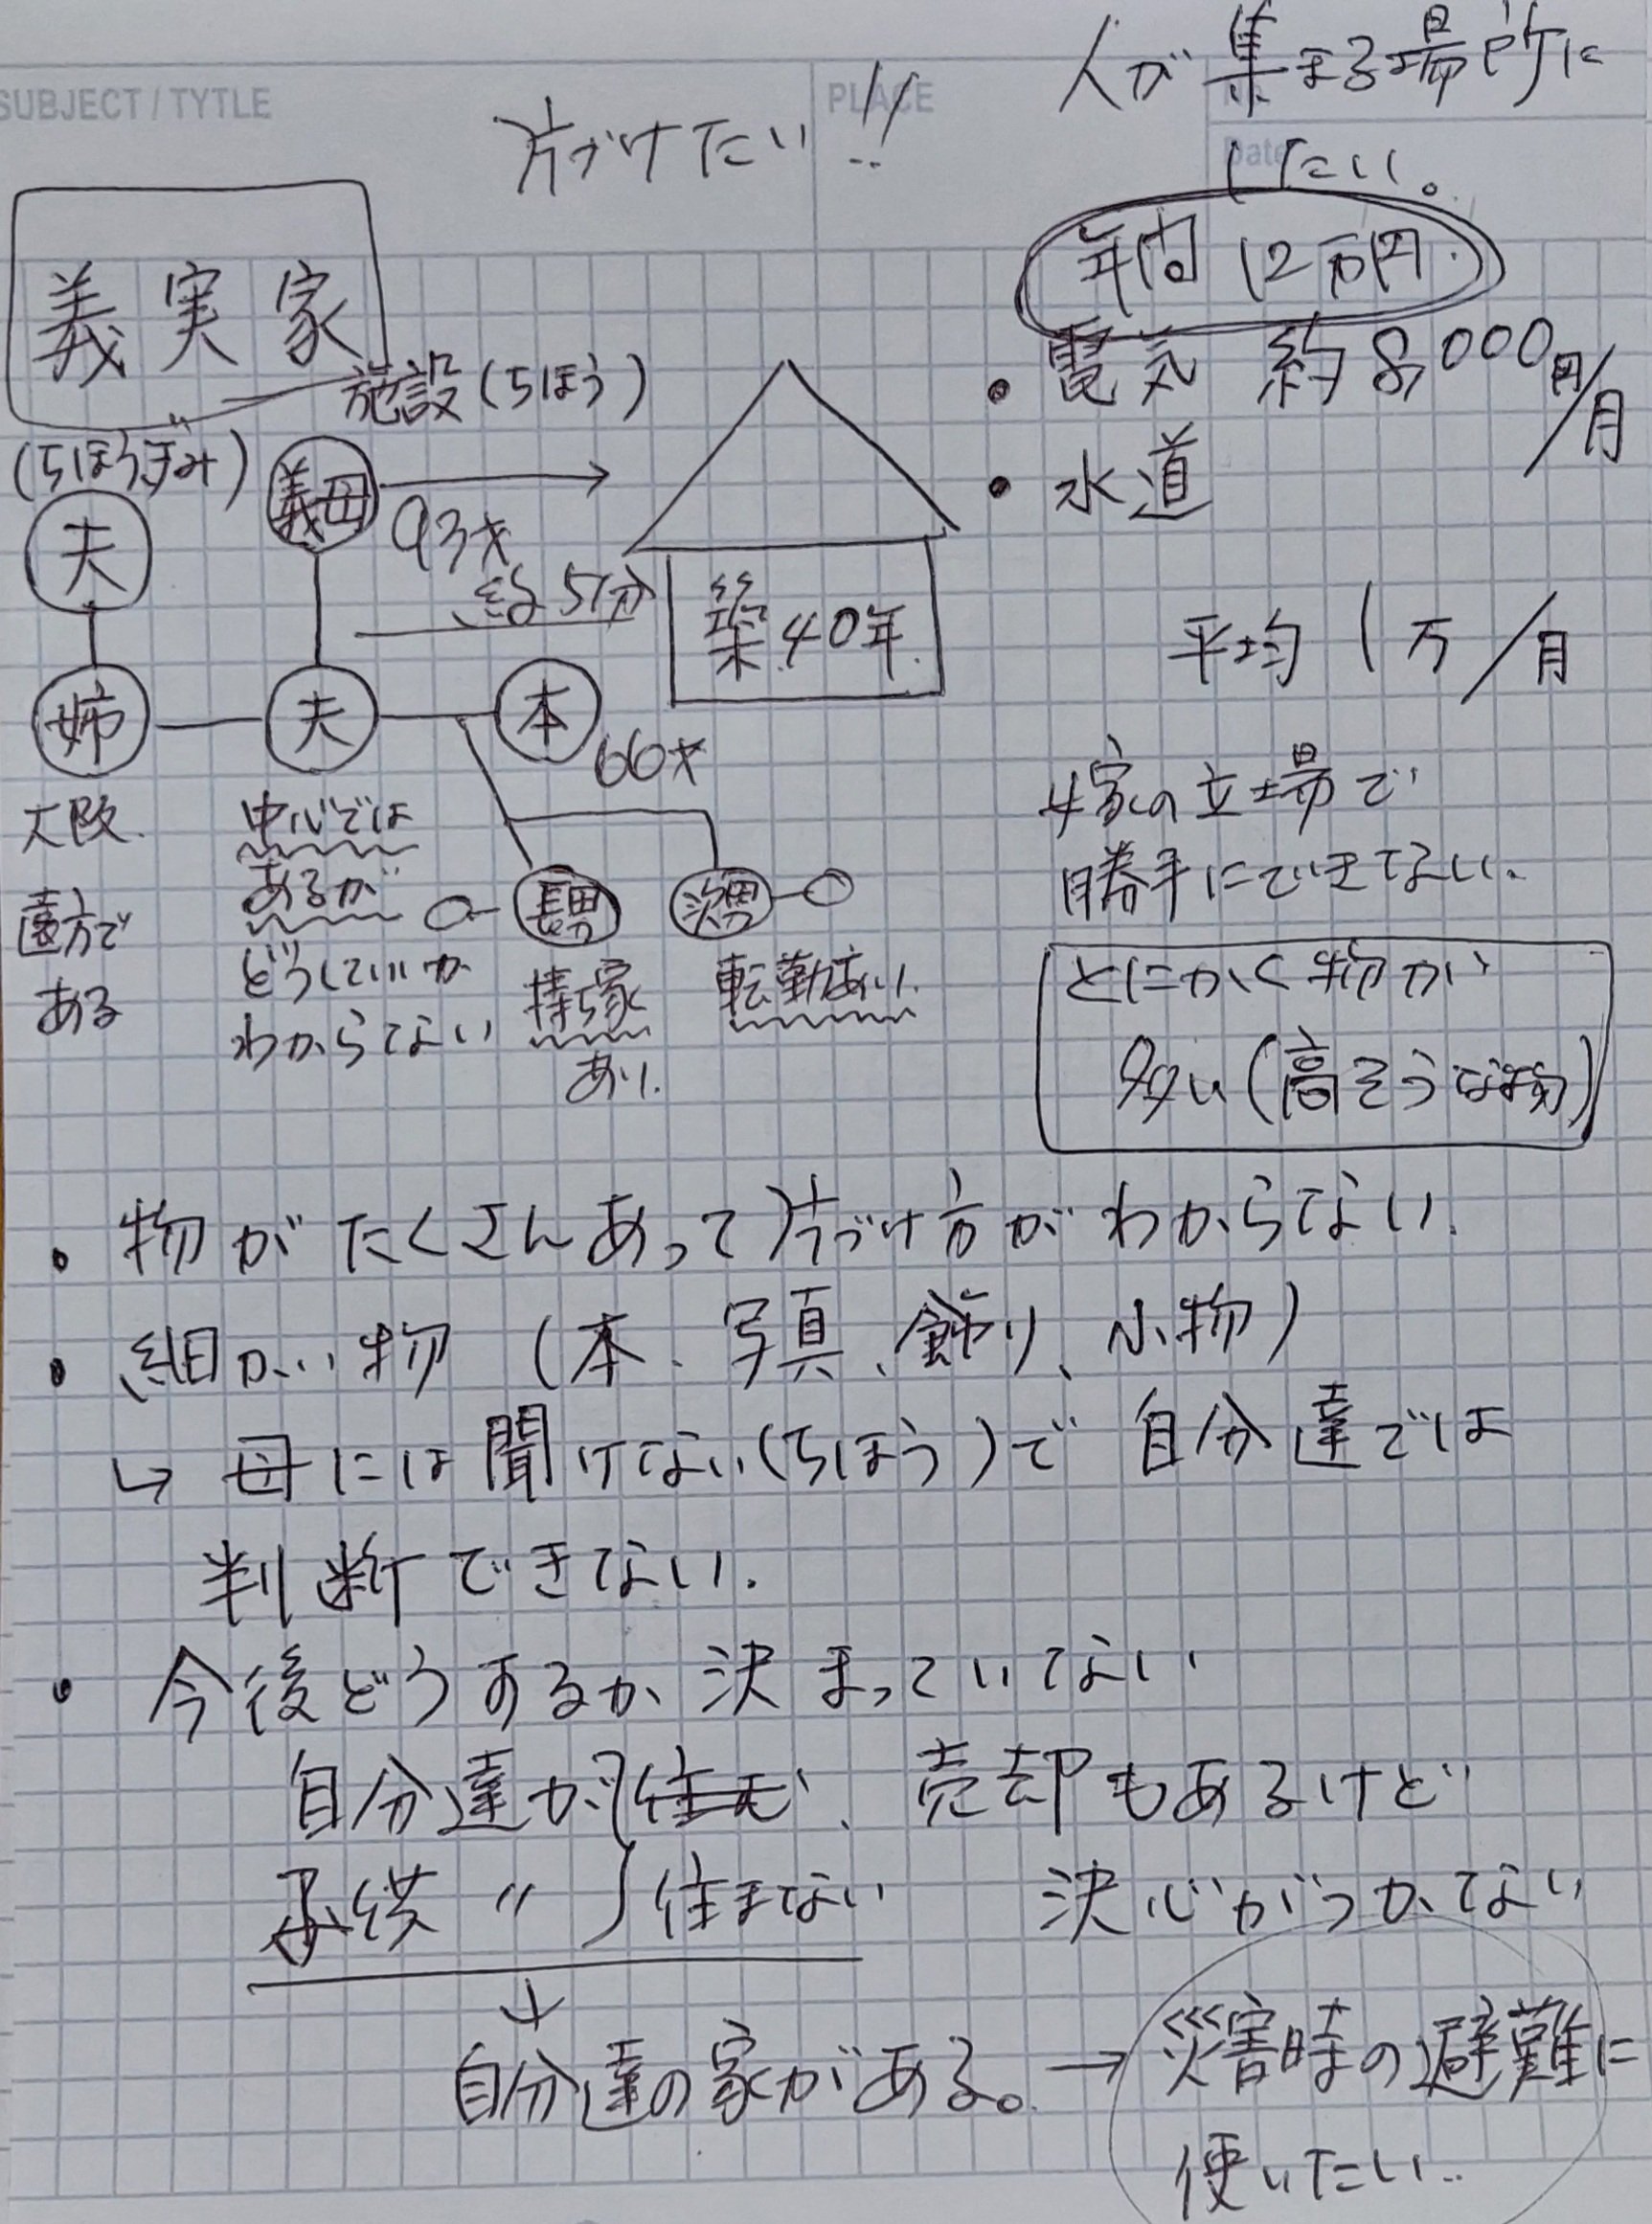 SUBJECT / TYTLE
PLACE
Date
人が集まる場所に
したい。
片づけたい!!
年間 12万円
義実家
・電気 約8,000円/月
施設(ちほう)
(ちほうぎみ)
義母
93才
・水道
夫
約5分
築40年
平均 1万/月
姉
夫
本
66才
大阪
遠方で
ある
中心では
あるが
どうしていいか
わからない
長男
持家
あり.
次男
転勤あり.
嫁の立場で
勝手にできない.
とにかく物が
多い(高そうな物)
・物がたくさんあって片づけ方がわからない.
・細かい物 (本、写真、飾り、小物)
↳ 母には聞けない(ちほう)で 自分達では
判断できない.
・今後どうするか決まっていない
自分達が住む、売却もあるけど
子供 〃 住まない 決心がつかない
↓
自分達の家がある。→ 災害時の避難に
使いたい..